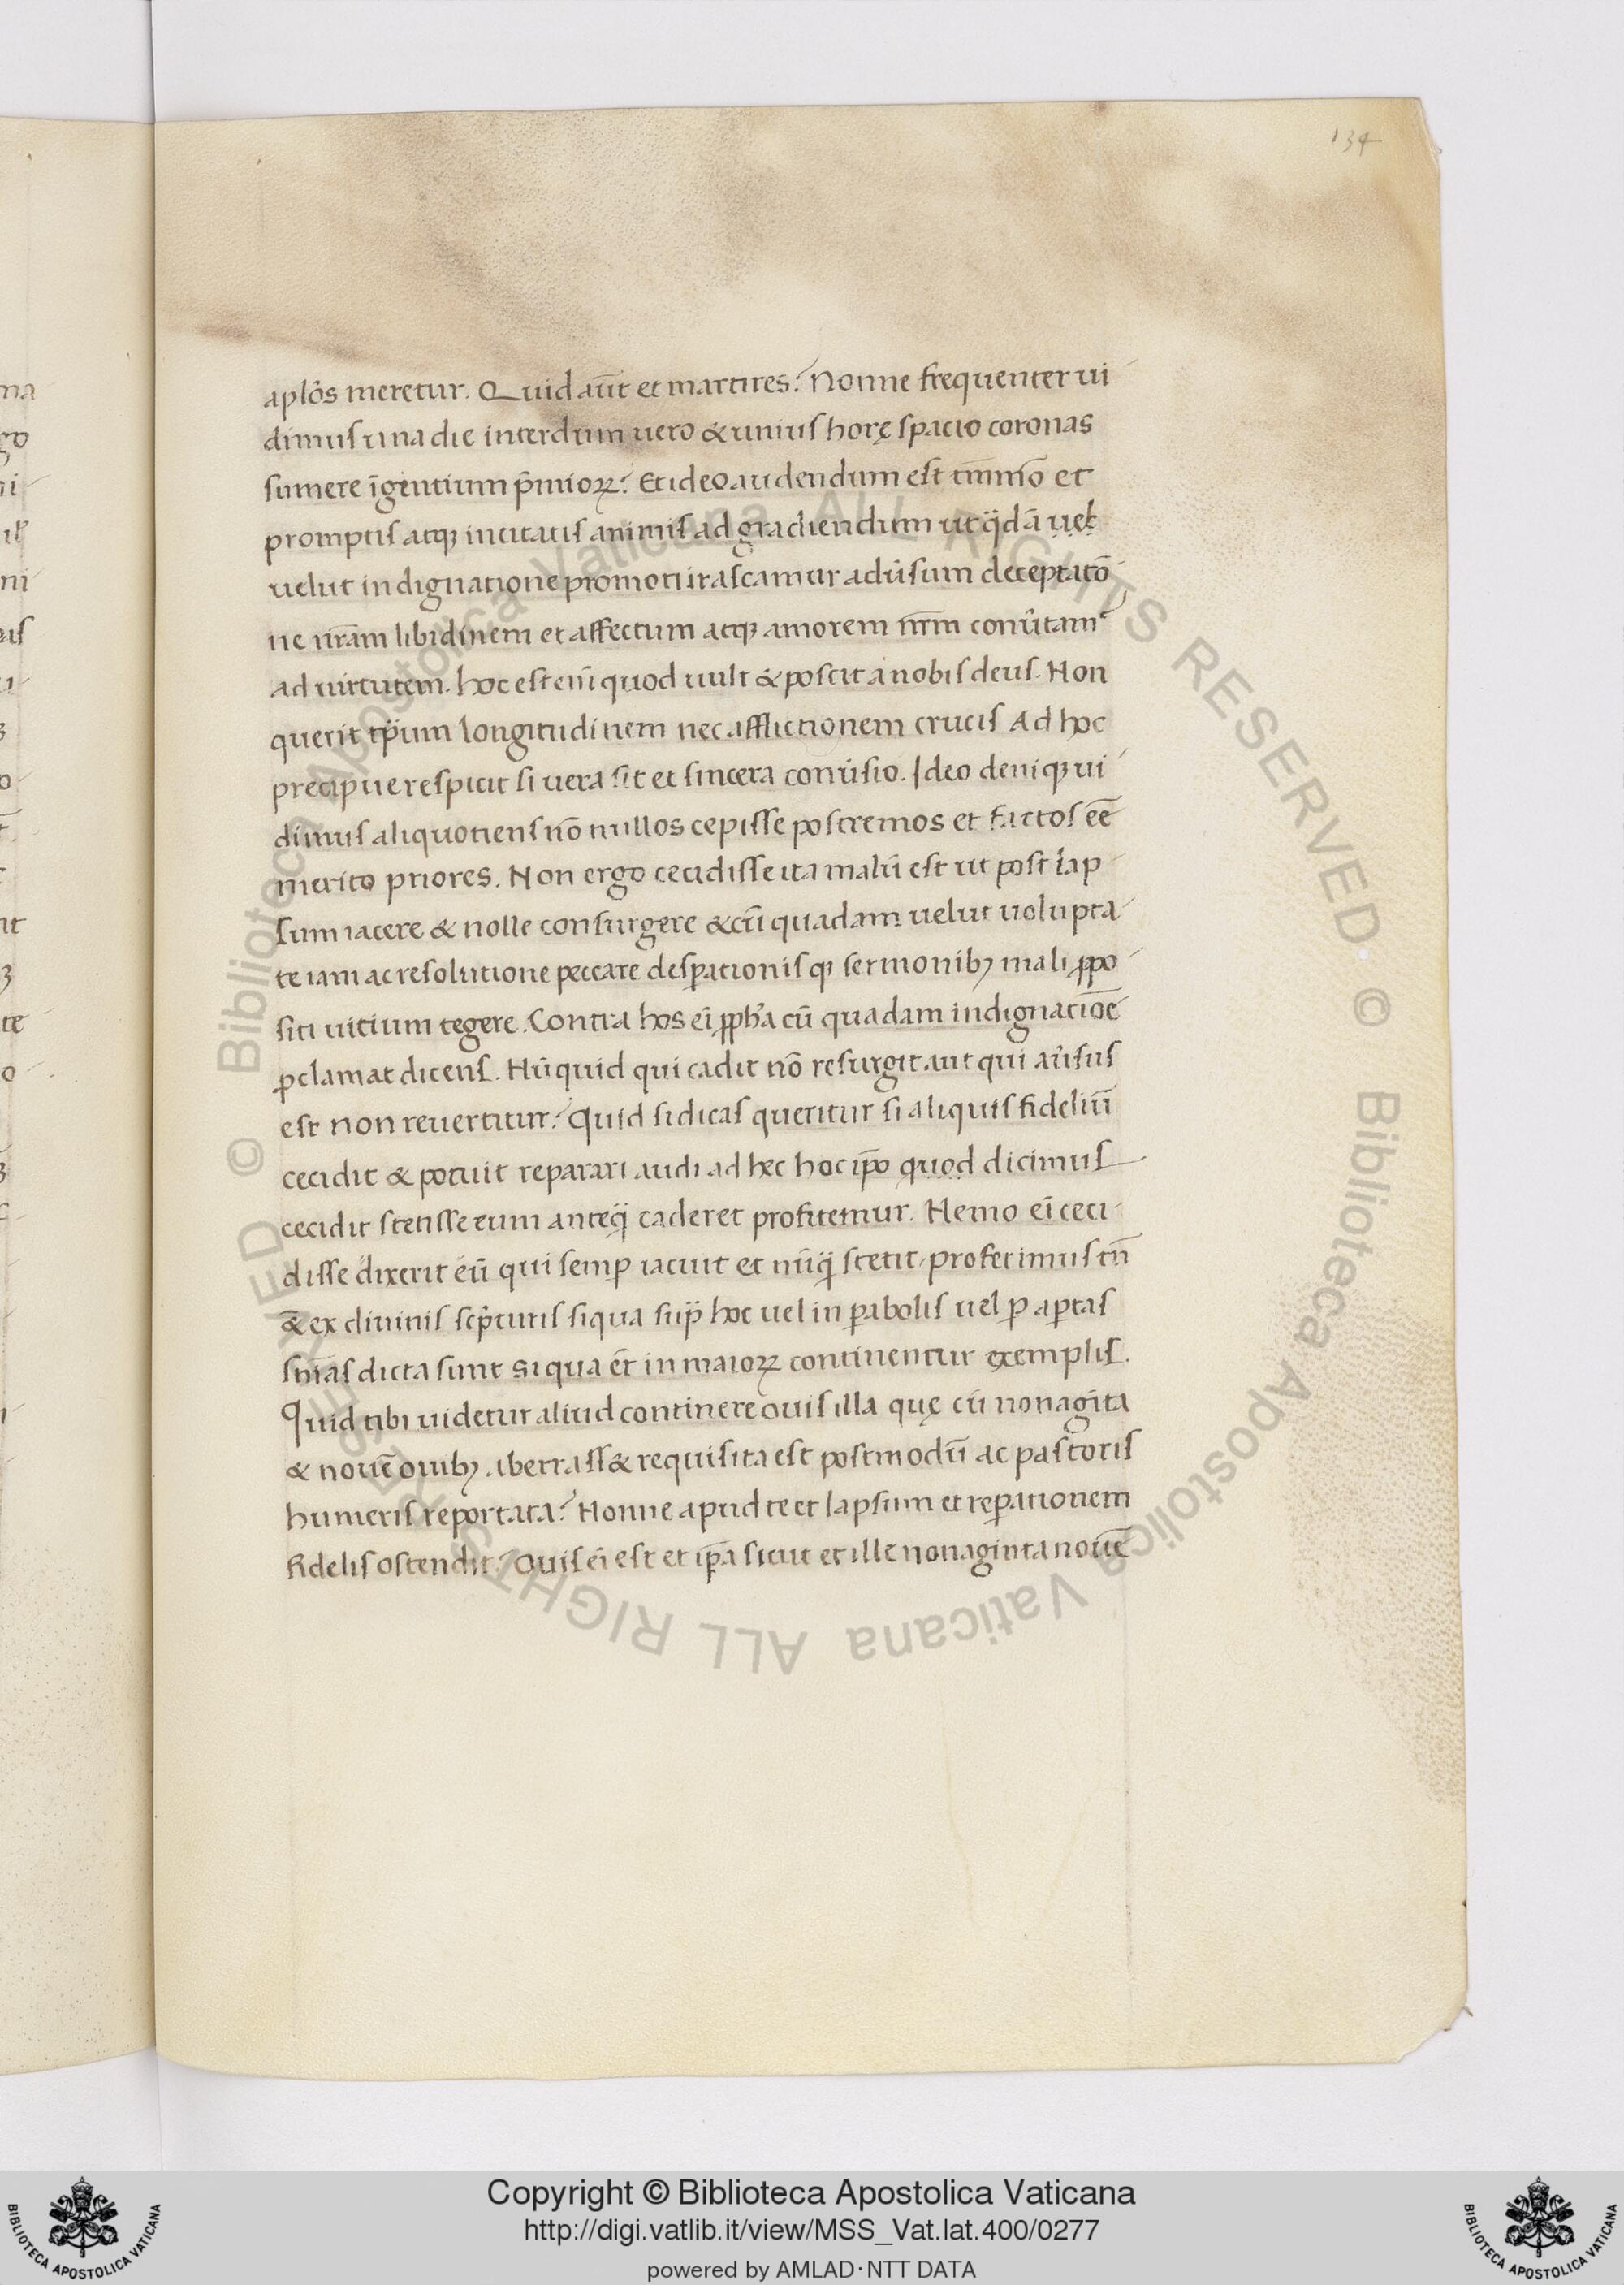 134
apl̄os meretur. Quid aūt et martires? Nonne frequenter ui
dimus una die interdum uero & unius horę spacio coronas
sumere īgentium p̄mioꝝ? Et ideo audendum est tm̄mō et
promptis atqꝫ incitatis animis ad gradiendum ut qͥdā uel
uelut indignatione promoti irascamur adūsum deceptatō
ne nr̄am libidinem et affectum atqꝫ amorem nr̄m conūtam
ad uirtutem. hoc est enī quod uult & poscit a nobis deus. Non
querit tp̄ium longitudinem nec afflictionem crucis Ad hoc
precipue respicit si uera sit et sincera conūsio. Ideo deniqꝫ ui
dimus aliquotiens nō nullos cepisse postremos et factos eē
merito priores. Non ergo cecidisse ita malū est ut post lap
sum iacere & nolle consurgere & cū quadam uelut uolupta
te iam ac resolutione peccare desꝑationis qꝫ sermonibꝫ mali ꝓpo
siti uitium tegere. Contra hos ei ꝓph̄a cū quadam indignatiōe
ꝓclamat dicens. Nūquid qui cadit nō resurgit aut qui aūsus
est non reuertitur? Quid si dicas queritur si aliquis fideliū
cecidit & potuit reparari audi ad hec hoc ip̄o quod dicimus
cecidit stetisse eum anteqͣ caderet profitemur. Nemo ei ceci
disse dixerit eū qui semꝑ iacuit et nūqͣ stetit, proferimus tn̄
& ex diuinis scͥpturis siqua suꝑ hoc uel in ꝑabolis uel ꝑ aꝑtas
sn̄ias dicta sunt siqua et̄ in maioꝝ continentur exemplis.
Quid tibi uidetur aliud continere ouis illa quę cū nonagīta
& nouē ouibꝫ aberrass& requisita est postmodū ac pastoris
humeris reportata? Nonne apud te et lapsum et reꝑationem
fidelis ostendit? Ouis ei est et ip̄a sicut et ille nonaginta nouē
Copyright © Biblioteca Apostolica Vaticana
http://digi.vatlib.it/view/MSS_Vat.lat.400/0277
powered by AMLAD·NTT DATA
BIBLIOTECA APOSTOLICA VATICANA
BIBLIOTECA APOSTOLICA VATICANA
© Biblioteca Apostolica Vaticana ALL RIGHTS RESERVED
© Biblioteca Apostolica Vaticana ALL RIGHTS RESERVED